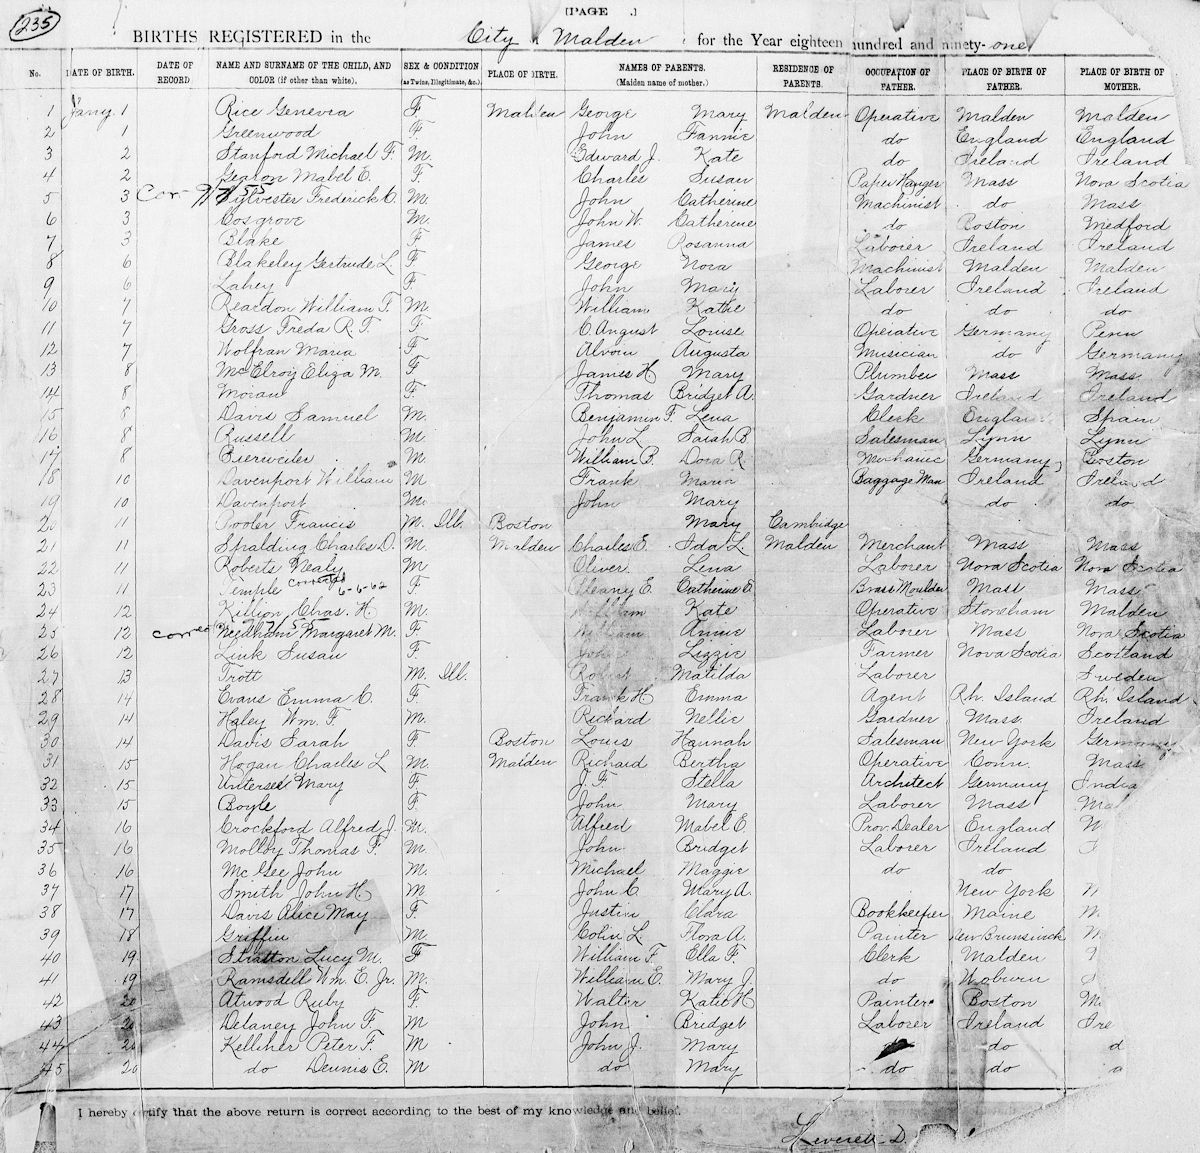 235
[PAGE .]
BIRTHS REGISTERED in the City Malden for the Year eighteen hundred and ninety-one
No. DATE OF BIRTH. DATE OF RECORD NAME AND SURNAME OF THE CHILD, AND COLOR (if other than white). SEX & CONDITION (as Twins, Illegitimate, &c.) PLACE OF BIRTH. NAMES OF PARENTS. (Maiden name of mother.) RESIDENCE OF PARENTS. OCCUPATION OF FATHER. PLACE OF BIRTH OF FATHER. PLACE OF BIRTH OF MOTHER.
1 Jany. 1 Rice Geneva F. Malden George Mary Malden Operative Malden Malden
2 1 Greenwood F. John Fannie do England England
3 2 Stanford Michael F. M. Edward J. Kate do Ireland Ireland
4 2 Gearon Mabel E. F. Charles Susan Paper Hanger Mass Nova Scotia
5 3 Cor- 9/7/55 Sylvester Frederick C. M. John Catherine Machinist do Mass
6 3 Cosgrove M. John W. Catherine do Boston Medford
7 3 Blake F James Rosanna Laborer Ireland Ireland
8 6 Blakeley Gertrude L F George Nora Machinist Malden Malden
9 6 Lahey F John Mary Laborer Ireland Ireland
10 7 Reardon William F. M. William Kathe do do do
11 7 Gross Freda R. F. F. C. August Louise Operative Germany Penn
12 7 Wolfran Maria F. Alvow Augusta Musician do Germany
13 8 McElroy Eliza M. F James H Mary Plumber Mass Mass.
14 8 Moran F. Thomas Bridget A. Gardner Ireland Ireland
15 8 Davis Samuel M. Benjamin F. Lena Clerk Englan Spain
16 8 Russell M. John L Sarah B Salesman Lynn Lynn
17 8 Bierweiler M. William B. Dora R Mechanic Germany Boston
18 10 Davenport William M Frank Maria Baggage Man Ireland Ireland
19 10 Davenport M. John Mary do do
20 11 Pooler Francis M. Ill. Boston Mary Cambridge
21 11 Spalding Charles D. M. Malden Charles E. Ida L. Malden Merchant Mass Mass
22 11 Roberts Nealy M Oliver. Lena Laborer Nova Scotia Nova Scotia
23 11 Temple corrected 6-6-62 F. Catherine E Brass Moulder Mass Mass
24 12 Killion Chas. H M. William Kate Operative Stoneham Malden
25 12 corrected 9/7/55 Needham Margaret M. F. William Annie Laborer Mass Nova Scotia
26 12 Link Susan F. John Lizzie Farmer Nova Scotia Scotland
27 13 Trott M. Ill. Robert Matilda Laborer Sweden
28 14 Evans Emma C. F. Frank H Emma Agent Rh. Island Rh. Island
29 14 Haley Wm. F. M. Richard Nellie Gardner Mass. Ireland
30 14 Davis Sarah F. Boston Louis Hannah Salesman New York Germany
31 15 Hogan Charles L M. Malden Richard Bertha Operative Conn. Mass
32 15 Untersee Mary F. J. F. Stella Architect Germany India
33 15 Boyle F. John Mary Laborer Mass Ma
34 16 Crockford Alfred J. M. Alfred Mabel E. Prov. Dealer England
35 16 Molloy Thomas F. M. John Bridget Laborer Ireland
36 16 McGee John M. Michael Maggie do do
37 17 Smith John H M. John C. Mary A. New York
38 17 Davis Alice May F. Justin Clara Bookkeeper Maine M
39 18 Griffin M. Colin L Flora A. Painter New Brunswick
40 19 Stratton Lucy M. F William F. Ella F. Clerk Malden
41 19 Ramsdell Wm. E. Jr. M. William E. Mary J. do Woburn
42 20 Atwood Ruby F. Walter Katie H Painter Boston M
43 20 Delaney John F. M John Bridget Laborer Ireland Ire
44 20 Kelliher Peter F. M John J. Mary do do d
45 20 do Dennis E. M do Mary do do
I hereby certify that the above return is correct according to the best of my knowledge and belief.
Leverett D.